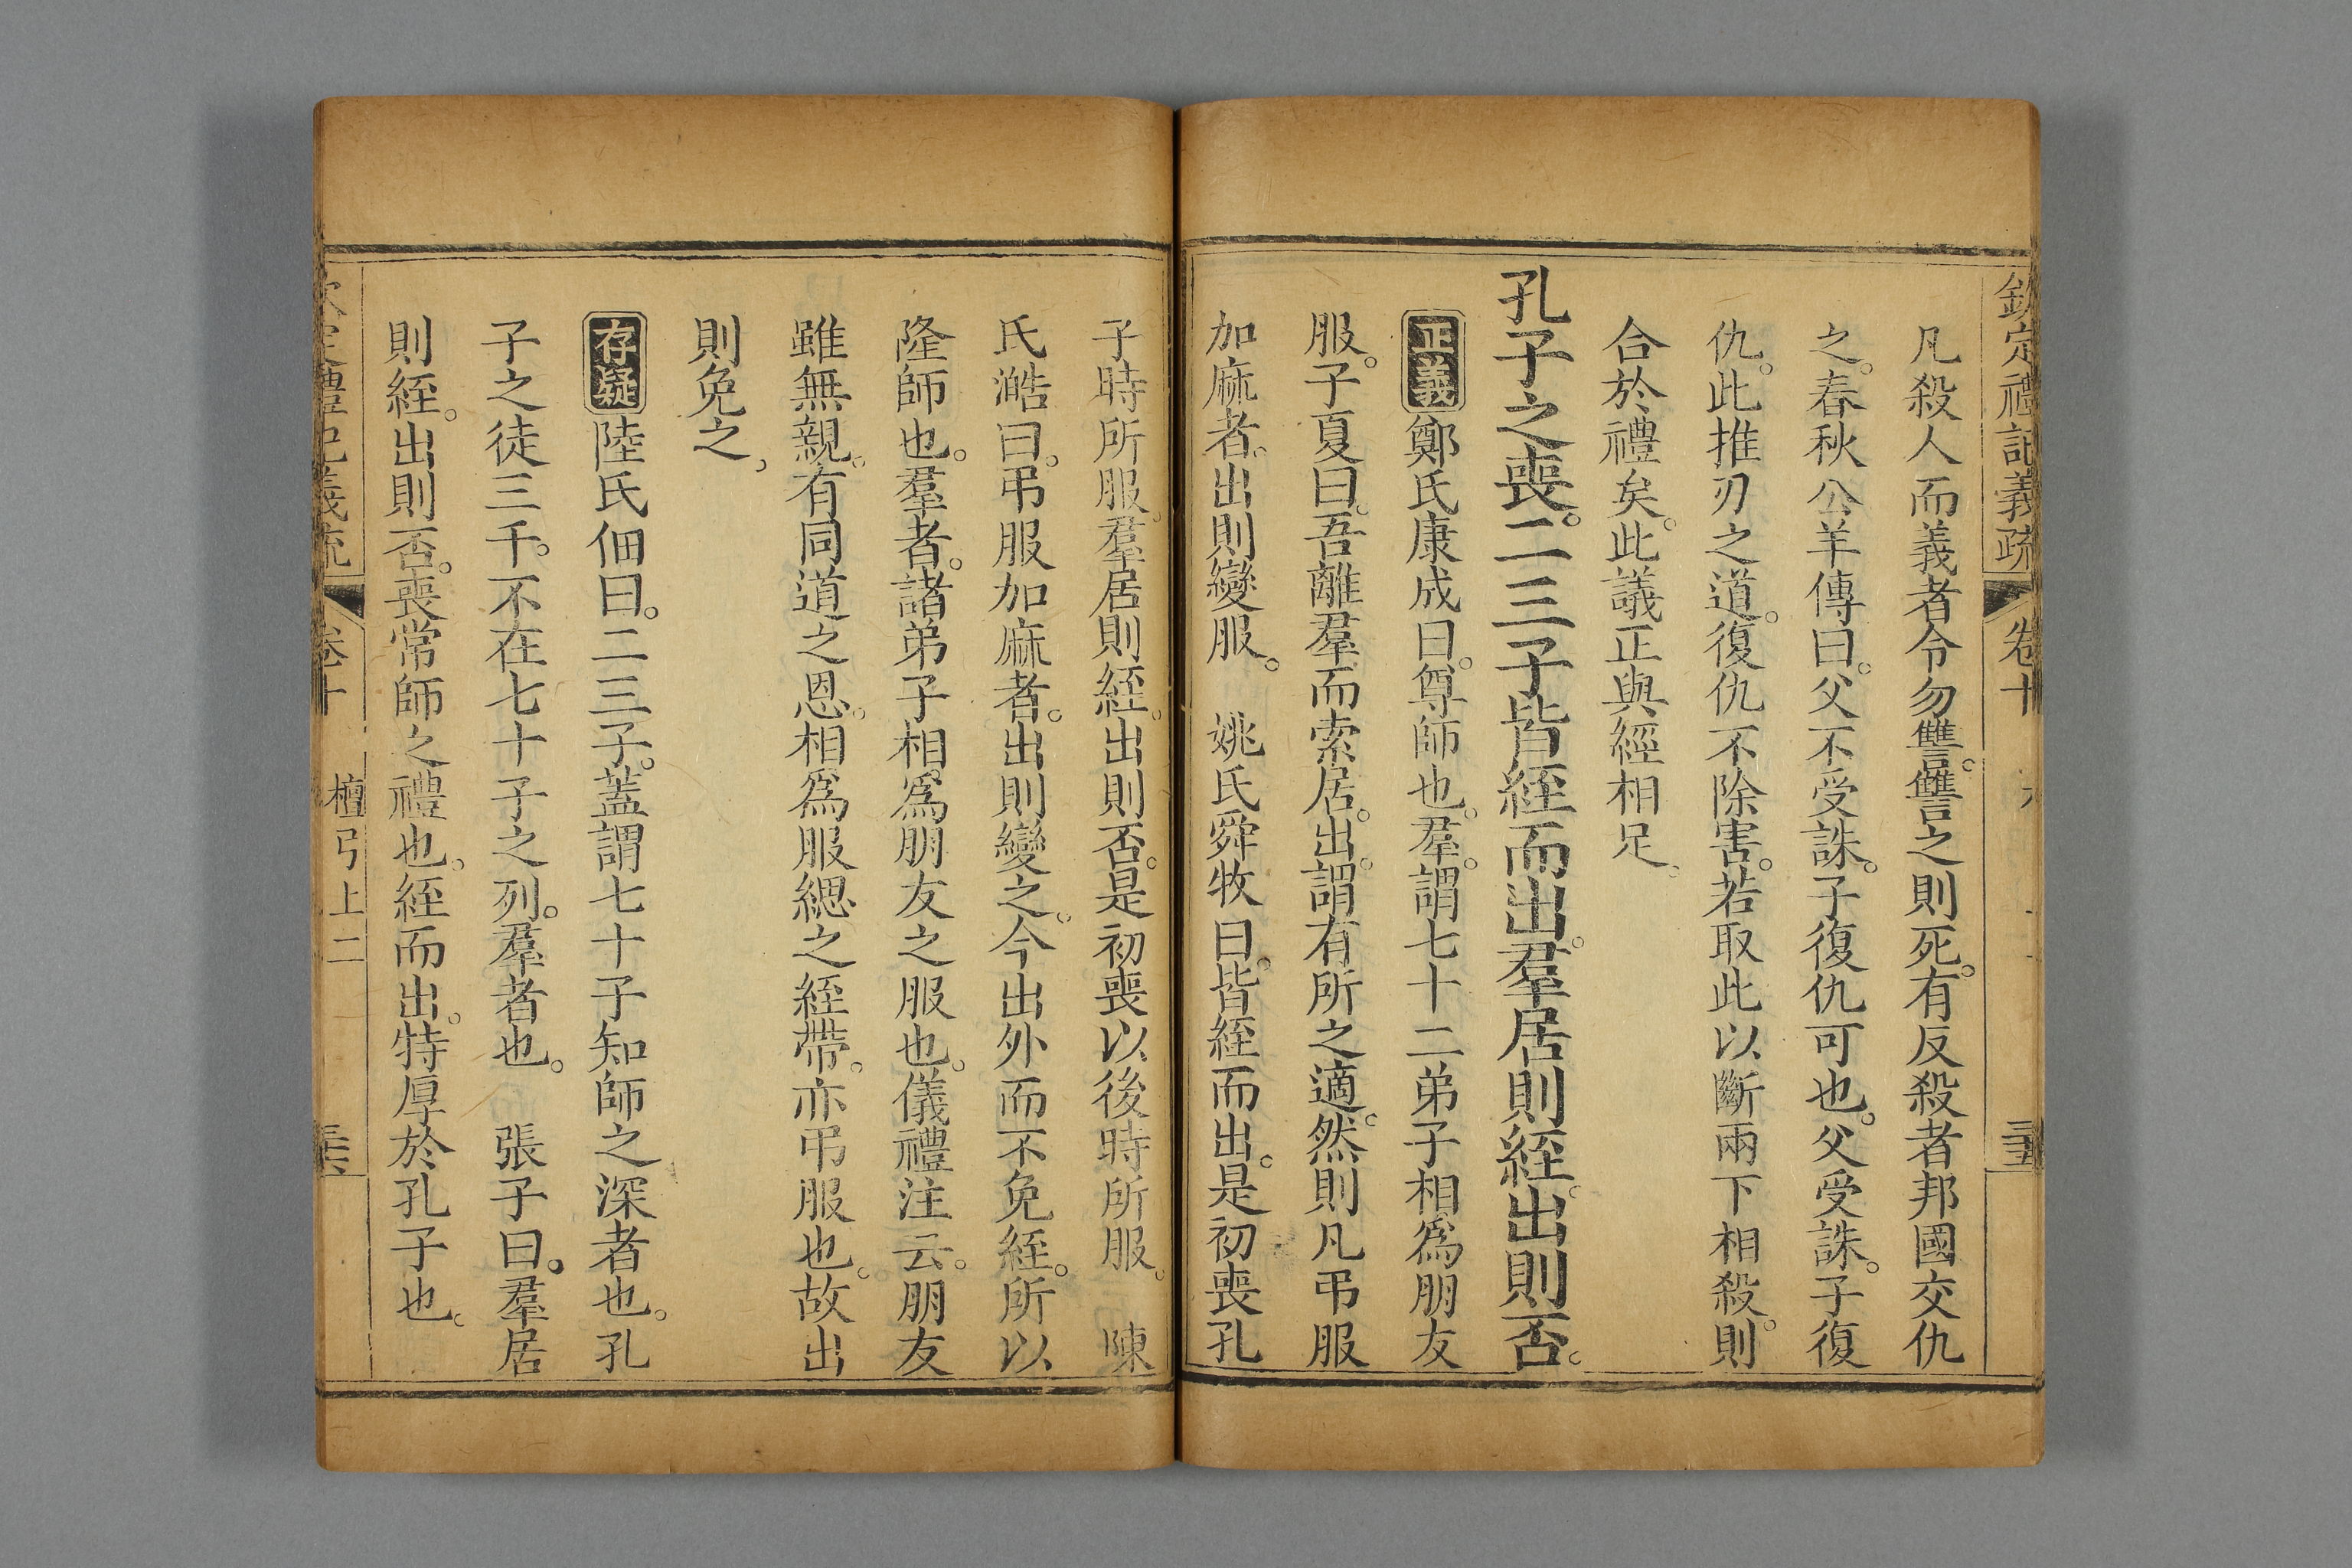 欽定禮記義疏 卷十 三五
凡殺人而義者令勿讐。讐之則死。有反殺者邦國交仇
之。春秋公羊傳曰。父不受誅。子復仇可也。父受誅。子復
仇。此推刃之道。復仇不除害。若取此以斷兩下相殺。則
合於禮矣。此議正與經相足。
孔子之喪。二三子皆絰而出。羣居則絰。出則否。
正義鄭氏康成曰。尊師也。羣。謂七十二弟子相爲朋友
服。子夏曰。吾離羣而索居。出。謂有所之適。然則凡弔服
加麻者。出則變服。 姚氏舜牧曰。皆絰而出。是初喪孔
子時所服。羣居則絰。出則否。是初喪以後時所服。 陳
氏澔曰。弔服加麻者。出則變之。今出外而不免絰。所以
隆師也。羣者。諸弟子相爲朋友之服也。儀禮注云。朋友
雖無親。有同道之恩。相爲服緦之絰帶。亦弔服也。故出
則免之。
存疑陸氏佃曰。二三子。蓋謂七十子知師之深者也。孔
子之徒三千。不在七十子之列。羣者也。 張子曰。羣居
則絰。出則否。喪常師之禮也。絰而出。特厚於孔子也。
欽定禮記義疏 卷十 檀弓上二